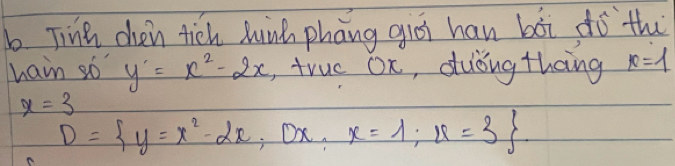 b. Tính diện tích hình phẳng giới hạn bởi đồ thị
hàm số y = x² - 2x, trục Ox, đường thẳng x=1
x = 3
D = { y = x² - 2x; Ox, x = 1; x = 3 }.